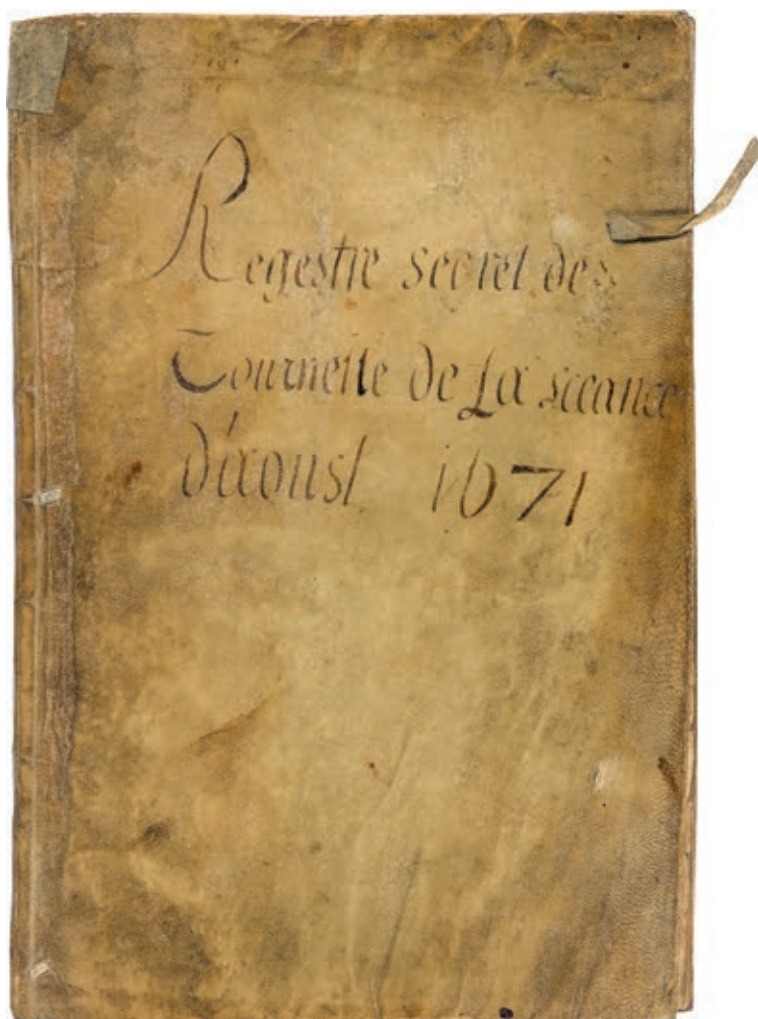 Regestre secret de
Tournelle de La sceance
d'aoust 1671